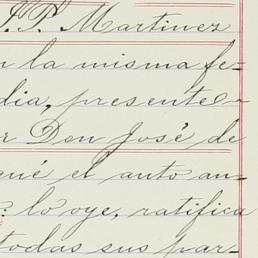 J. P. Martinez
n la misma fe=
dia, presente
r Don José de
qué el auto an-
: lo oye, ratifica
todas sus par-